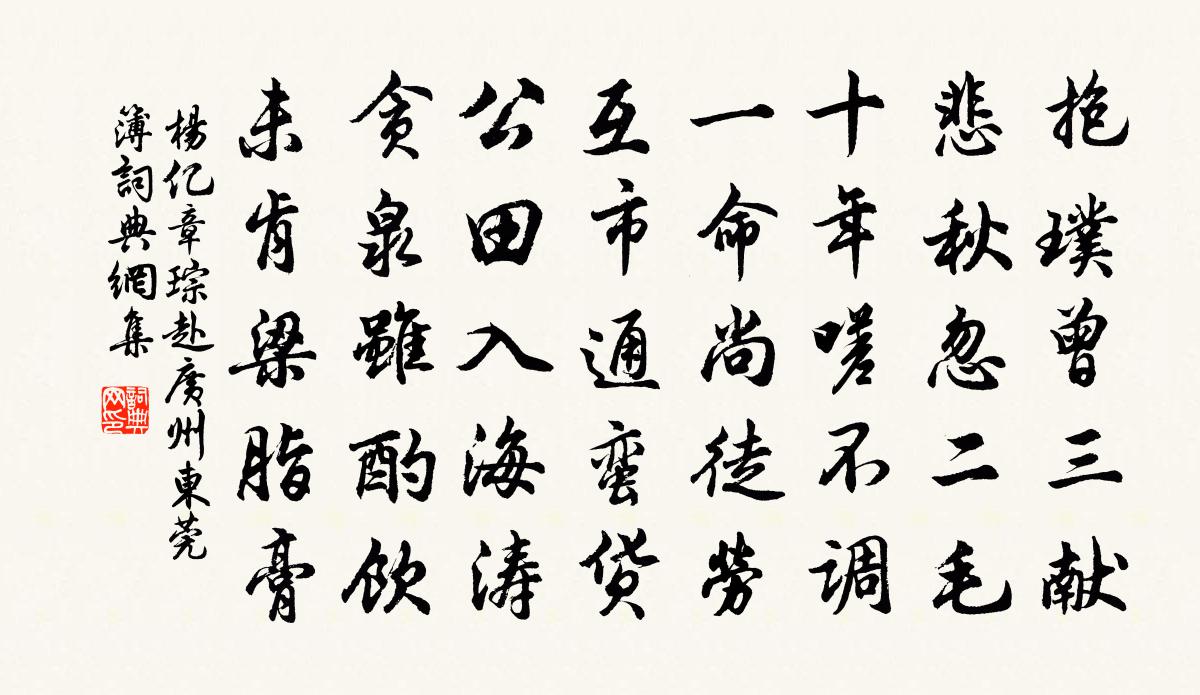 抱璞曾三献
悲秋忽二毛
十年嗟不调
一命尚徒劳
互市通蛮货
公田入海涛
贪泉雖酌饮
未肯梁脂膏
楊亿章琮赴廣州東莞
簿詞典網集
詞典网印